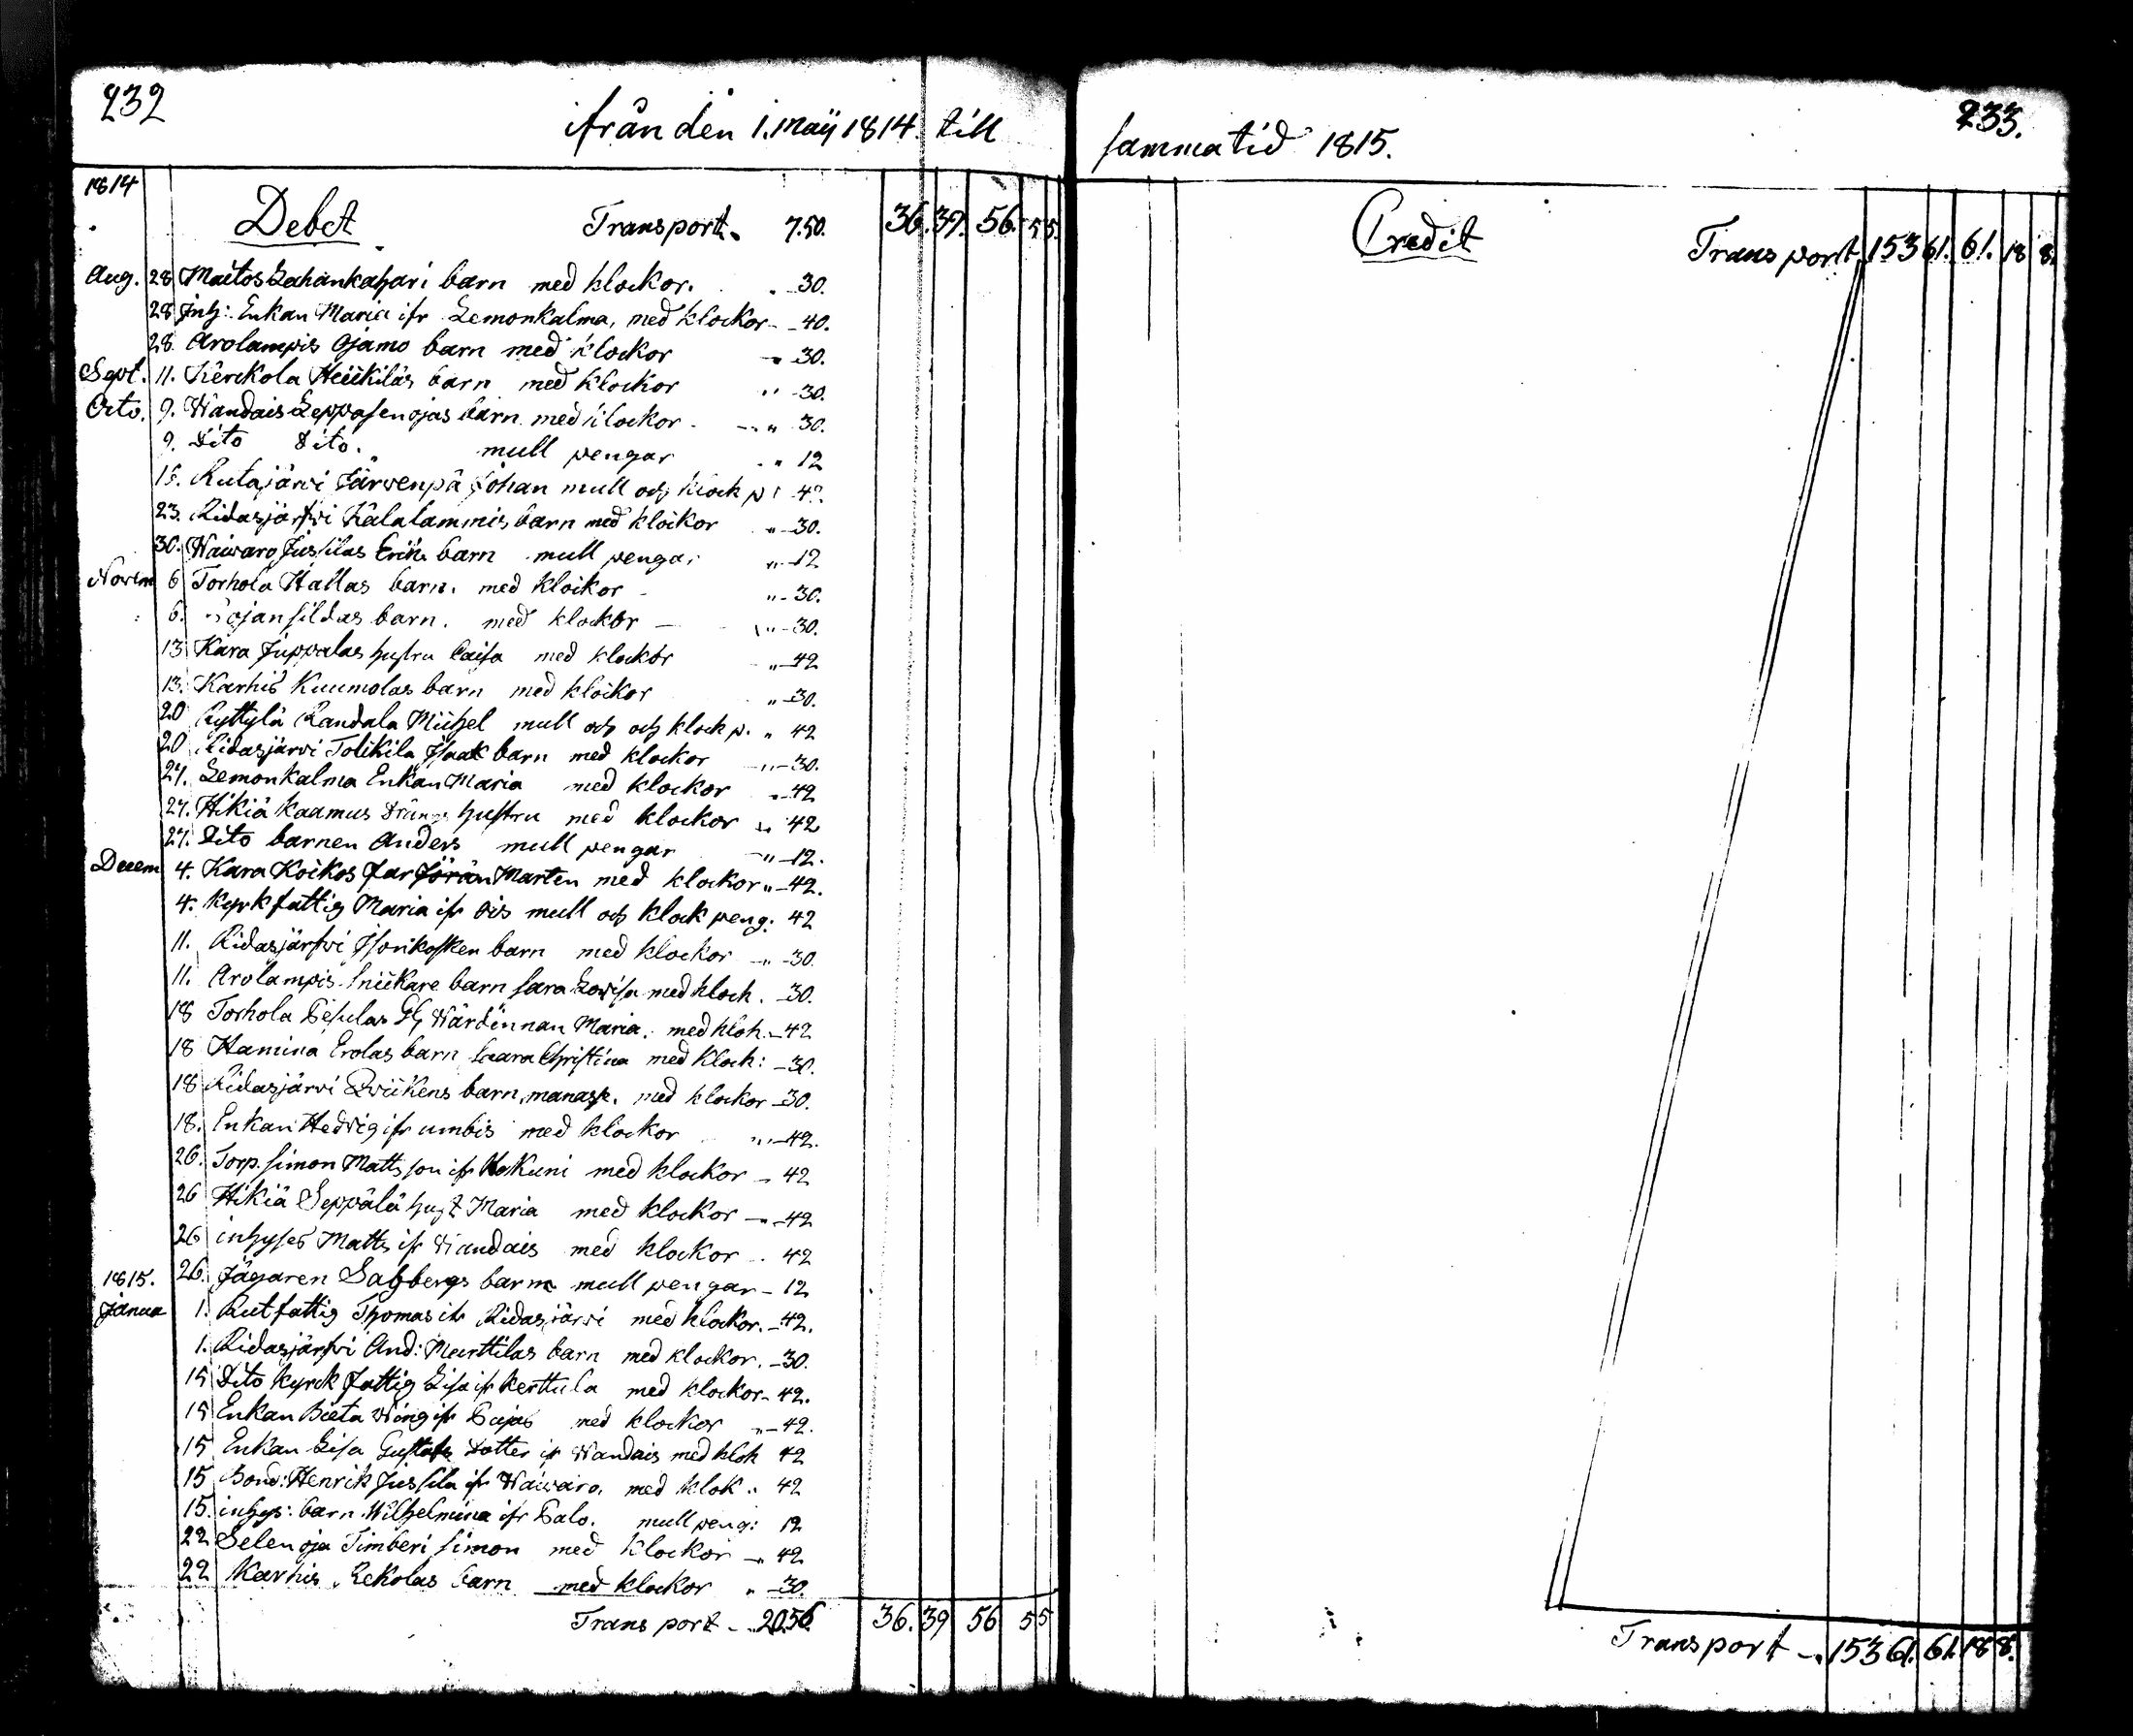 232
ifrån den 1. Maÿ 1814. till
1814
Debet Transport. 7.50. 36. 39. 56. 55.
Aug. 28 Maitos Lahankahari barn med klockor. 30.
28 Inh: Enkan Maria ifr Lemonkalma, med klockor 40.
28. Arolampis Ojamo barn med klockor 30.
Sept. 11. Kerckola Heickiläs barn med klockor 30.
Octo. 9. Wandais Leppäsenojas barn med klockor 30.
9. Dito Dito. mull pengar 12
15. Rutajärvi Järvenpä Johan mull och klock p
23. Ridasjärfvi Kälalammis barn med klockor 30.
30. Waiwaro Jussilas barn mull pengar 12
Novem 6 Torhola Hallas barn. med klockor 30.
6. barn. med klockor 30.
13 Kara Juppalas hustru Caisa med klockor 42
13. Karhis Kuumolas barn med klockor 30.
20 Ryttylä Randala Michel mull och och klock p. 42
20 Ridasjärvi Tolikila Isaak barn med klockor 30.
27. Lemonkalma Enkan Maria med klockor 42
27. Hikiä Kaamus Drängs hustru med klockor 42
27. Dito barnen Anders mull pengar 12.
Decem 4. Kara Koikos Far Marten med klockor 42.
4. Kyrkfattig Maria ifr Ois mull och klock peng: 42
11. Ridasjärfvi barn med klockor 30.
11. Arolampis Sniickare barn Sara Lovisa med klock. 30.
18 Torhola Pesulas Gl. Wärdinnan Maria. med kloh. 42
18 Hamina Erolas barn Saara Christina med klock: 30.
18 Ridasjärvi barn, manasse. med klockor 30.
18. Enkan Hedvig ifr umbis med klockor 42.
26. Torp. Simon Mattsson ifr Hokuni med klockor 42
26 Hikiä Seppälä Hust Maria med klockor 42
26 inhyses Matts ifr Wandais med klockor 42
1815. 26. Jägaren Salzbergs barn mull pengar 12
Janua 1. Rutfattig Thomas ifr Ridasjärvi med klockor. 42.
1. Ridasjärfvi And: Meerttilas barn med klockor. 30.
15 Dito kyrck fattig Lisa ifr Kerttula med klockor 42.
15 Enkan Beeta Wing ifr Pajas med klockor 42.
15 Enkan Lisa Gustafs dotter ifr Wandais med kloh 42
15 Bond: Henrik Jussila ifr Waiwaro. med klok. 42
15. inhys: barn Wilhelmina ifr Palo. mull peng: 12
22 Selenoja Timberi Simon med klockor 42
22 Karhis Lekolas barn med klockor 30.
Transport 20.56. 36. 39 56 55
233.
samma tid 1815.
Credit Transport 153 61. 61. 18 8.
Transport 153 61. 61. 18 8.